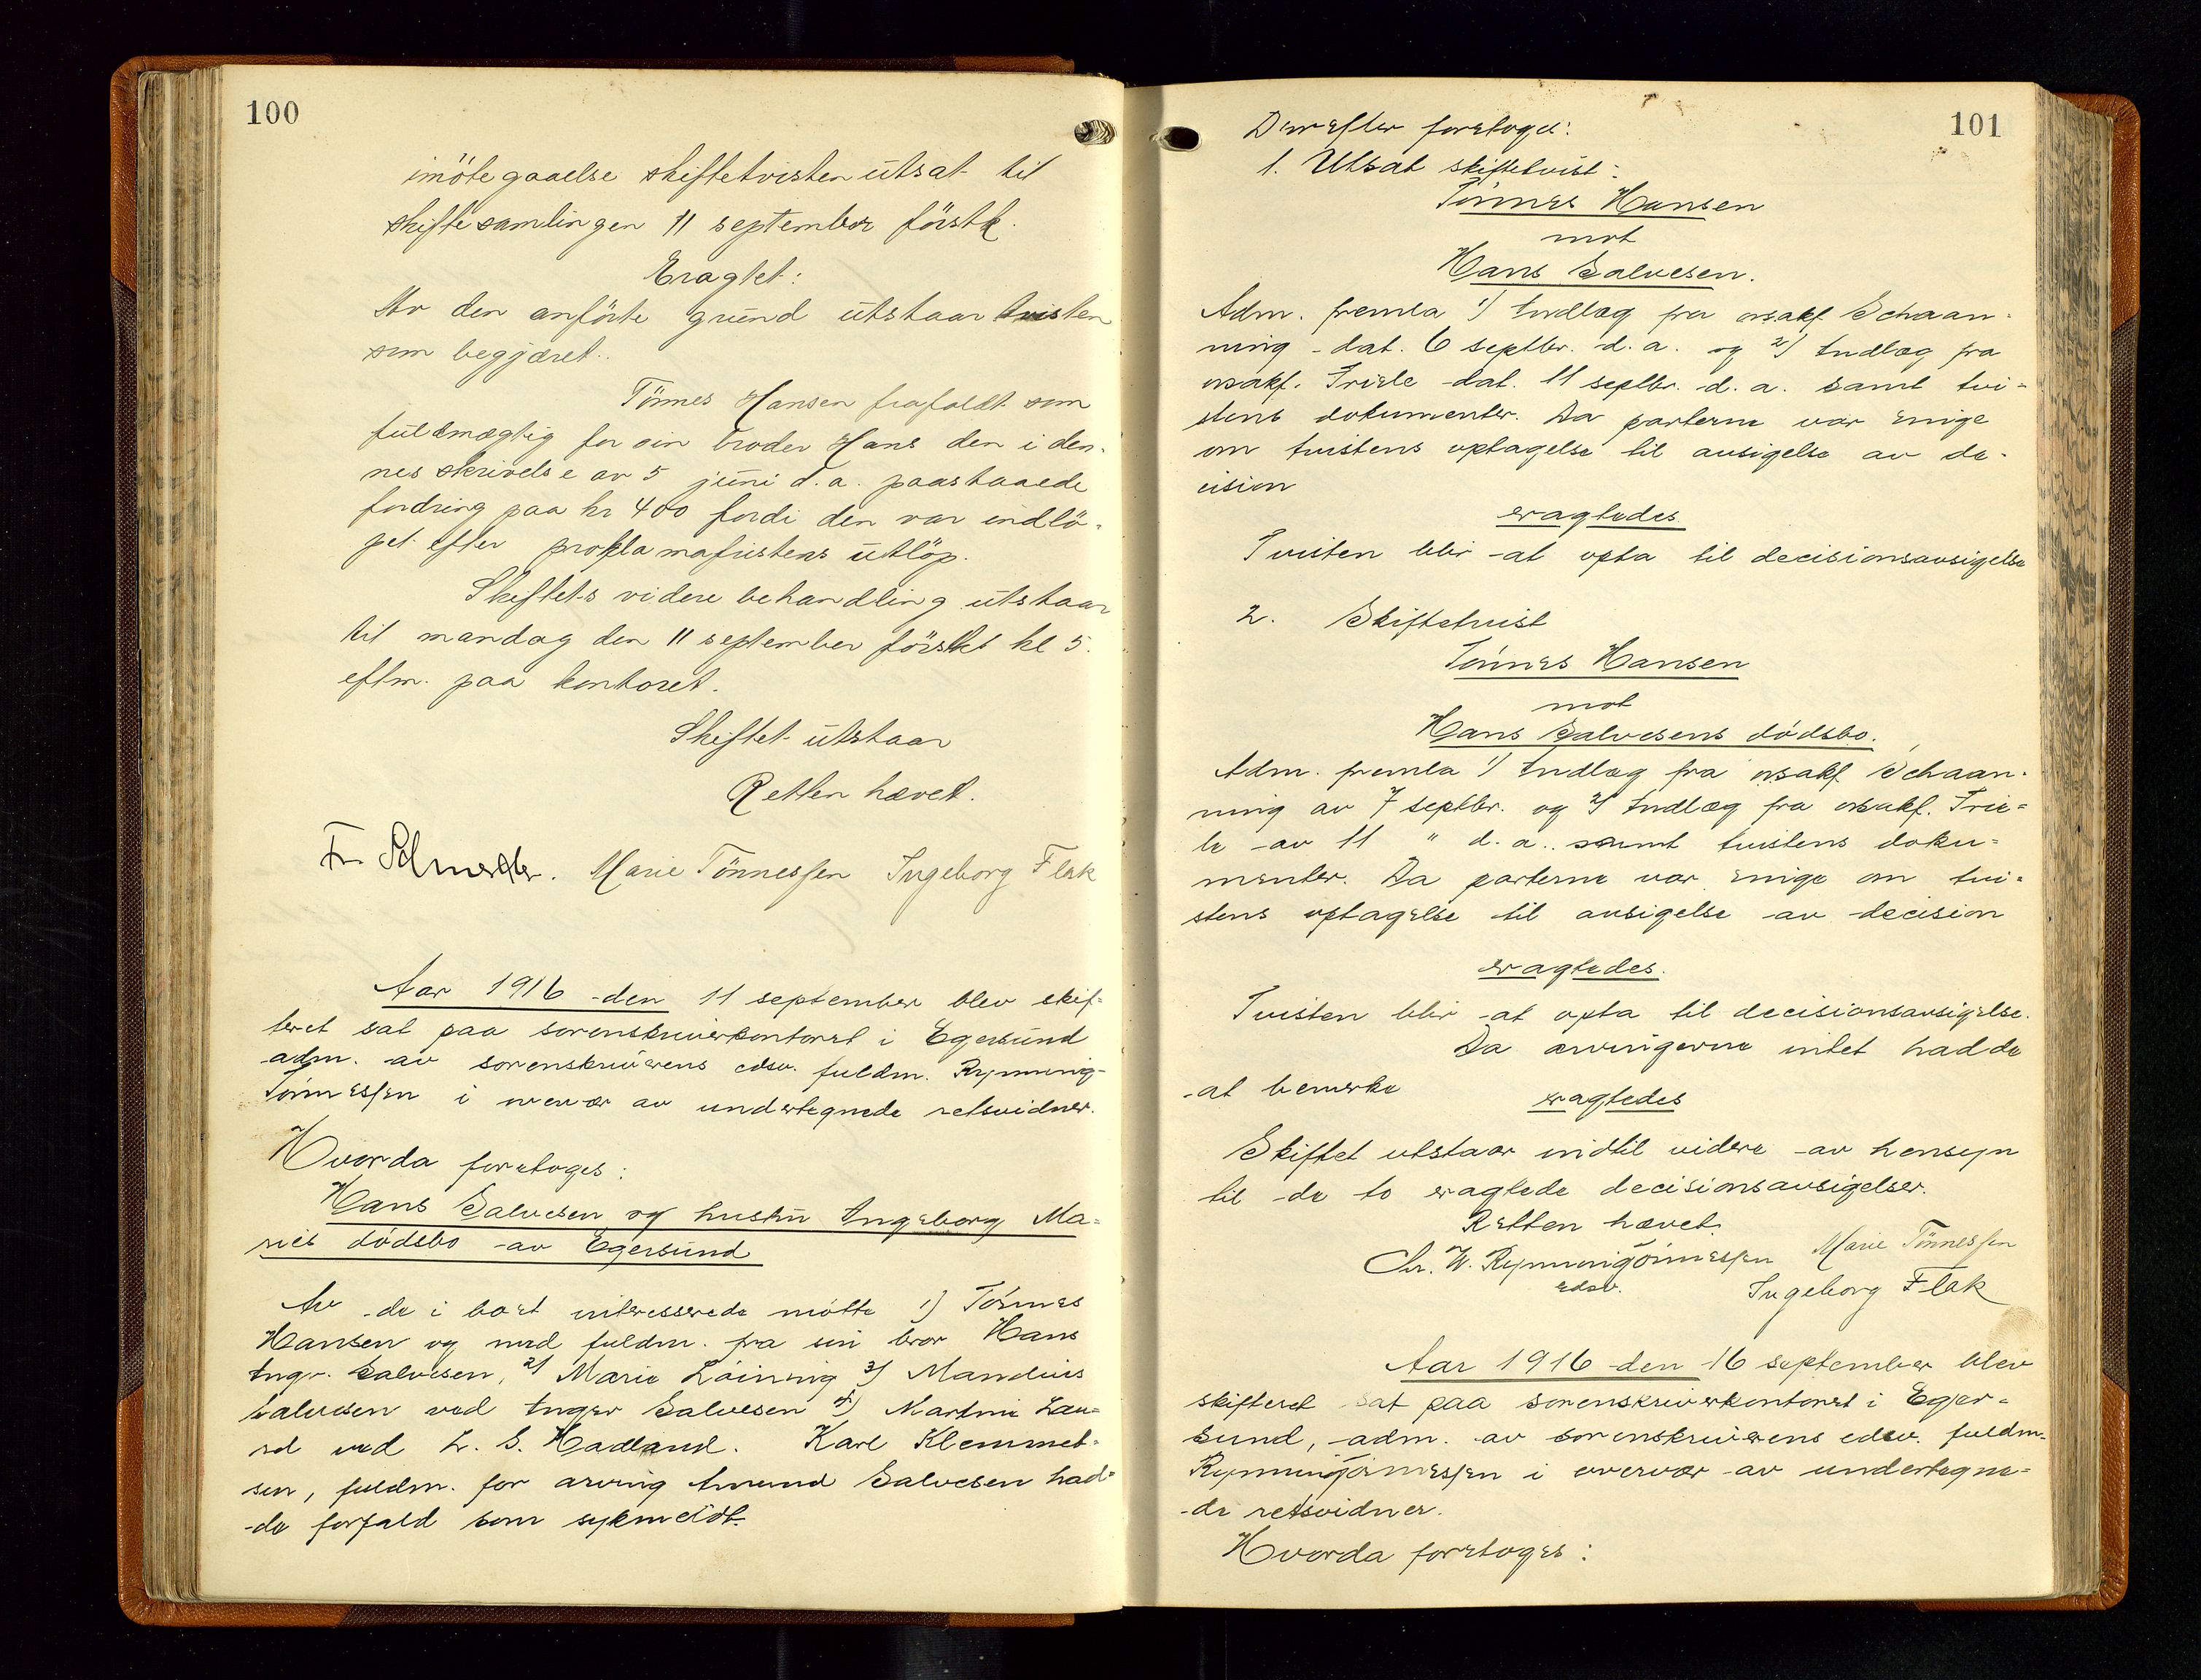 100
imötegaaelse skiftetvisten utsat til
skiftesamlingen 11 september förstk.
Eragtet:
Av den anförte grund utstaar tvisten
som begjæret.
Tönnes Hansen frafaldt som
fuldmægtig for sin broder Hans den i den-
nes skrivelse av 5 juni d.a. paastaaede
fordring paa kr 400 fordi den var indlö-
pet efter proklamafristens utlöp.
Skiftets videre behandling utstaar
til mandag den 11 september förstkt kl 5.
eftm. paa kontoret.
Skiftet utstaar
Retten hævet.
Marie Tönnessen Ingeborg Flak
Aar 1916 den 11 september blev skif-
teret sat paa sorenskriverkontoret i Egersund
adm. av sorenskriverens edsv. fuldm. Rynning-
Tónnessen i overvær av undertegnede retsvidner.
Hvorda foretoges:
Hans Salvesen og hustru Ingeborg Ma-
ries dódsbo av Egersund
Av de i boet interesserede mótte 1) Tónnes
Hansen og med fuldm. fra sin bror Hans
Ingv. Salvesen, 2) Marie Lóining 3) Mandius
Salvesen ved Inger Salvesen 4) Martine Lau-
rd ved L. S. Hadland. Karl Klemmet-
sen, fuldm. for arving Amund Salvesen had-
de forfald som sykmeldt.
101
Derefter foretoges:
1. Utsat skiftetvist:
Tónnes Hansen
mot
Hans Salvesen.
Adm. fremla 1) Indlæg fra orsakf. Schaan-
ning dat. 6 septbr. d.a. og 2) Indlæg fra
orsakf. Friele dat. 11 septbr. d.a. samt tvi-
stens dokumenter. Da parterne var enige
om tvistens optagelse til avsigelse av de-
cision
eragtedes
Tvisten blir at opta til decisionsavsigelse
2. Skiftetvist
Tónnes Hansen
mot
Hans Salvesens dódsbo.
Adm. fremla 1) Indlæg fra orsakf Schaan-
ning av 7 septbr. og 2) Indlæg fra orsakf. Frie-
le av 11 " d.a. samt tvistens doku-
menter. Da parterne var enige om tvi-
stens optagelse til avsigelse av decision
eragtedes.
Tvisten blir at opta til decisionsavsigelse.
Da arvingerne intet hadde
at bemerke
eragtedes
Skiftet utstaar indtil videre av hensyn
til de to eragtede decisionsavsigelser.
Retten hævet.
Chr. W. Rynning Tónnessen Marie Tönnessen
edsv. Ingeborg Flak
Aar 1916 den 16 september blev
skifteret sat paa sorenskriverkontoret i Eger-
sund, adm. av sorenskriverens edsv. fuldm.
Rynning Tónnessen i overvær av undertegne-
de retsvidner.
Hvorda foretoges: